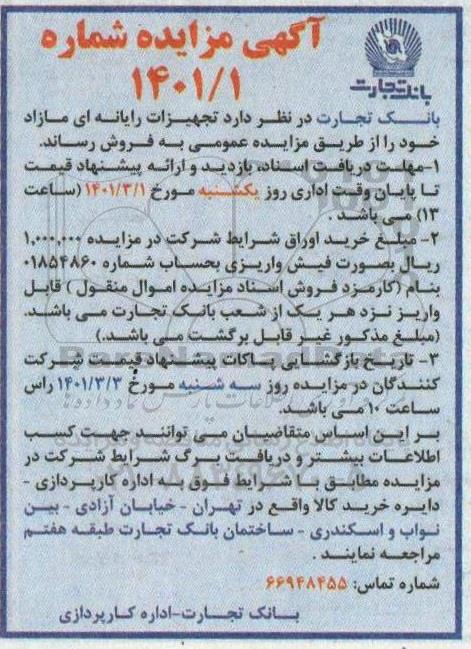 آگهی مزایده شماره
۱۴۰۱/۱
بانک تجارت
بانک تجارت در نظر دارد تجهیزات رایانه ای مازاد
خود را از طریق مزایده عمومی به فروش رساند.
۱-مهلت دریافت اسناد، بازدید و ارائه پیشنهاد قیمت
تا پایان وقت اداری روز یکشنبه مورخ ۱۴۰۱/۳/۱ (ساعت
۱۳) می باشد .
۲- مبلغ خرید اوراق شرایط شرکت در مزایده ۱,۰۰۰,۰۰۰
ریال بصورت فیش واریزی بحساب شماره ۰۱۸۵۴۸۶۰
بنام (کارمزد فروش اسناد مزایده اموال منقول ) قابل
واریز نزد هر یک از شعب بانک تجارت می باشد.
(مبلغ مذکور غیر قابل برگشت می باشد.)
۳- تاریخ بازگشایی پاکات پیشنهاد قیمت شرکت
کنندگان در مزایده روز سه شنبه مورخ ۱۴۰۱/۳/۳ راس
ساعت ۱۰ می باشد.
بر این اساس متقاضیان می توانند جهت کسب
اطلاعات بیشتر و دریافت برگ شرایط شرکت در
مزایده مطابق با شرایط فوق به اداره کارپردازی -
دایره خرید کالا واقع در تهران - خیابان آزادی - بین
نواب و اسکندری - ساختمان بانک تجارت طبقه هفتم
مراجعه نمایند .
شماره تماس: ۶۶۹۴۸۴۵۵
بانک تجارت-اداره کارپردازی